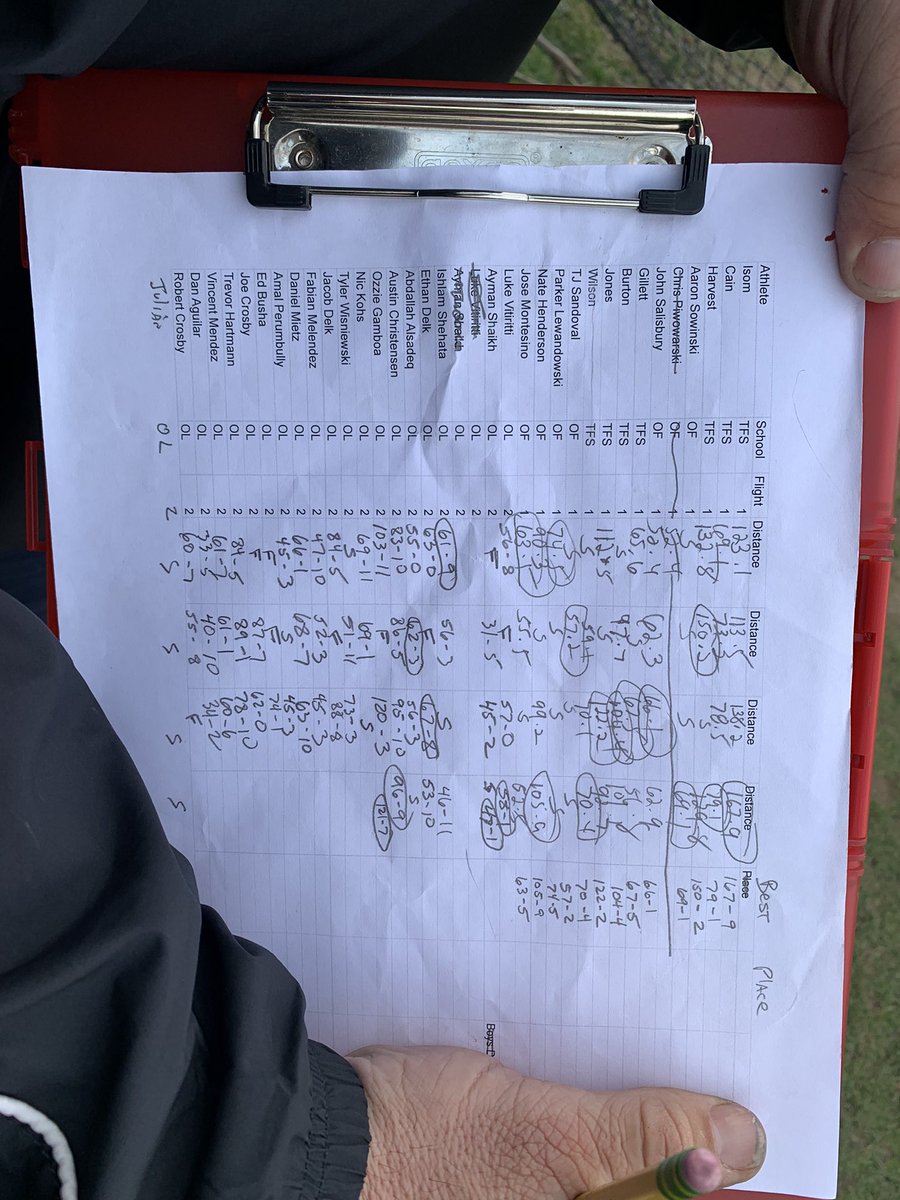 Athlete School Flight Distance Distance Distance Distance Place BEST PLACE
Isom TFS 1 123.1 113.5 138-2 167-9 167-9
Cain TFS 1 78.5 79.1 79-1
Harvest TFS 1 132-8 150.2 S 150-2
Aaron Sowinski OF 1 S S 69.1 69-1
Chris Piwowarski OF 1
John Salisbury OF 1 50.4 62.3 66-1 62.9 66-1
Gillett TFS 1 65.6 67-5
Burton TFS 1 S 97.7 104-4
Jones TFS 1 112.5 S 122.2 122-2
Wilson TFS 1 S 59.4 70.1 70.4 70-4
TJ Sandoval OF 1 57.2 S S 57-2
Parker Lewandowski OF 1 74.5 S S S 74-5
Nate Henderson OF 1 90.3 S 99.2 105.9 105-9
Jose Montesino OF 1 63.5 55.5 S 63-5
Luke Vitiritti OL 2 56-8 F 57-0 58-1
Ayman Shaikh OL 2 F 31.5 45-2 S 47-1
Boys D
Luke Vitiritti OL 2
Ayman Shaikh OL 2
Ishlam Shehata OL 2 61-9 56-3 S 46-11
Ethan Delk OL 2 63-0 F 67-8 53-10
Abdallah Alsadeq OL 2 55-0 62-3 56-3 S
Austin Christensen OL 2 83-0 86-5 95-10 96-9
Ozzie Gamboa OL 2 103-11 F 120-3 121-7
Nic Kohs OL 2 69-11 69-1 S
Tyler Wisniewski OL 2 S 51-11 73-3
Jacob Delk OL 2 84-5 F 88-8
Fabian Melendez OL 2 47-10 52-3 45-3
Daniel Mietz OL 2 66-1 68-7 63-10
Amal Perumbully OL 2 45-3 S 45-3
Ed Busha OL 2 F F 74-1
Joe Crosby OL 2 F 87-7 62-0
Trevor Hartmann OL 2 84-5 89-1 78-10
Vincent Mendez OL 2 61-2 61-1 60-6
Dan Aguilar OL 2 33-5 40-10 34-2
Robert Crosby OL 2 60-7 55-8 F
Julian OL 2 S S S S